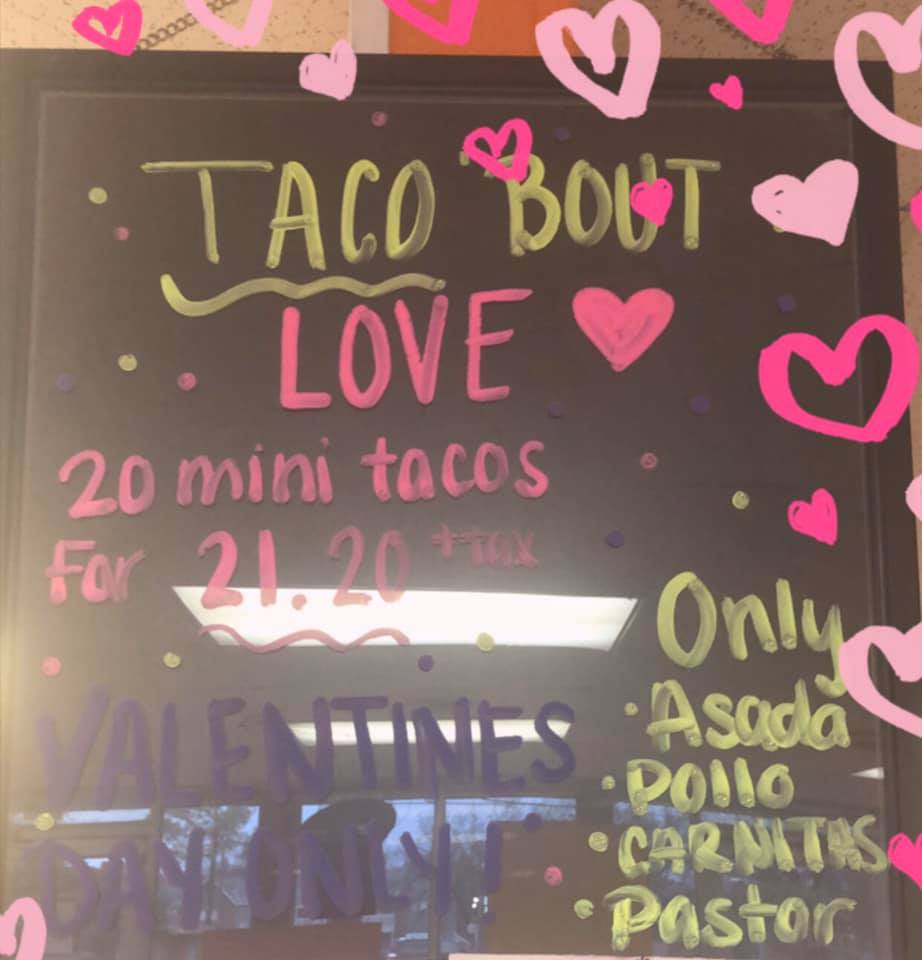 TACO BOUT
LOVE
20 mini tacos
For 21.20 + tax
VALENTINES
DAY ONLY!
Only
• Asada
• Pollo
• CARNITAS
• Pastor